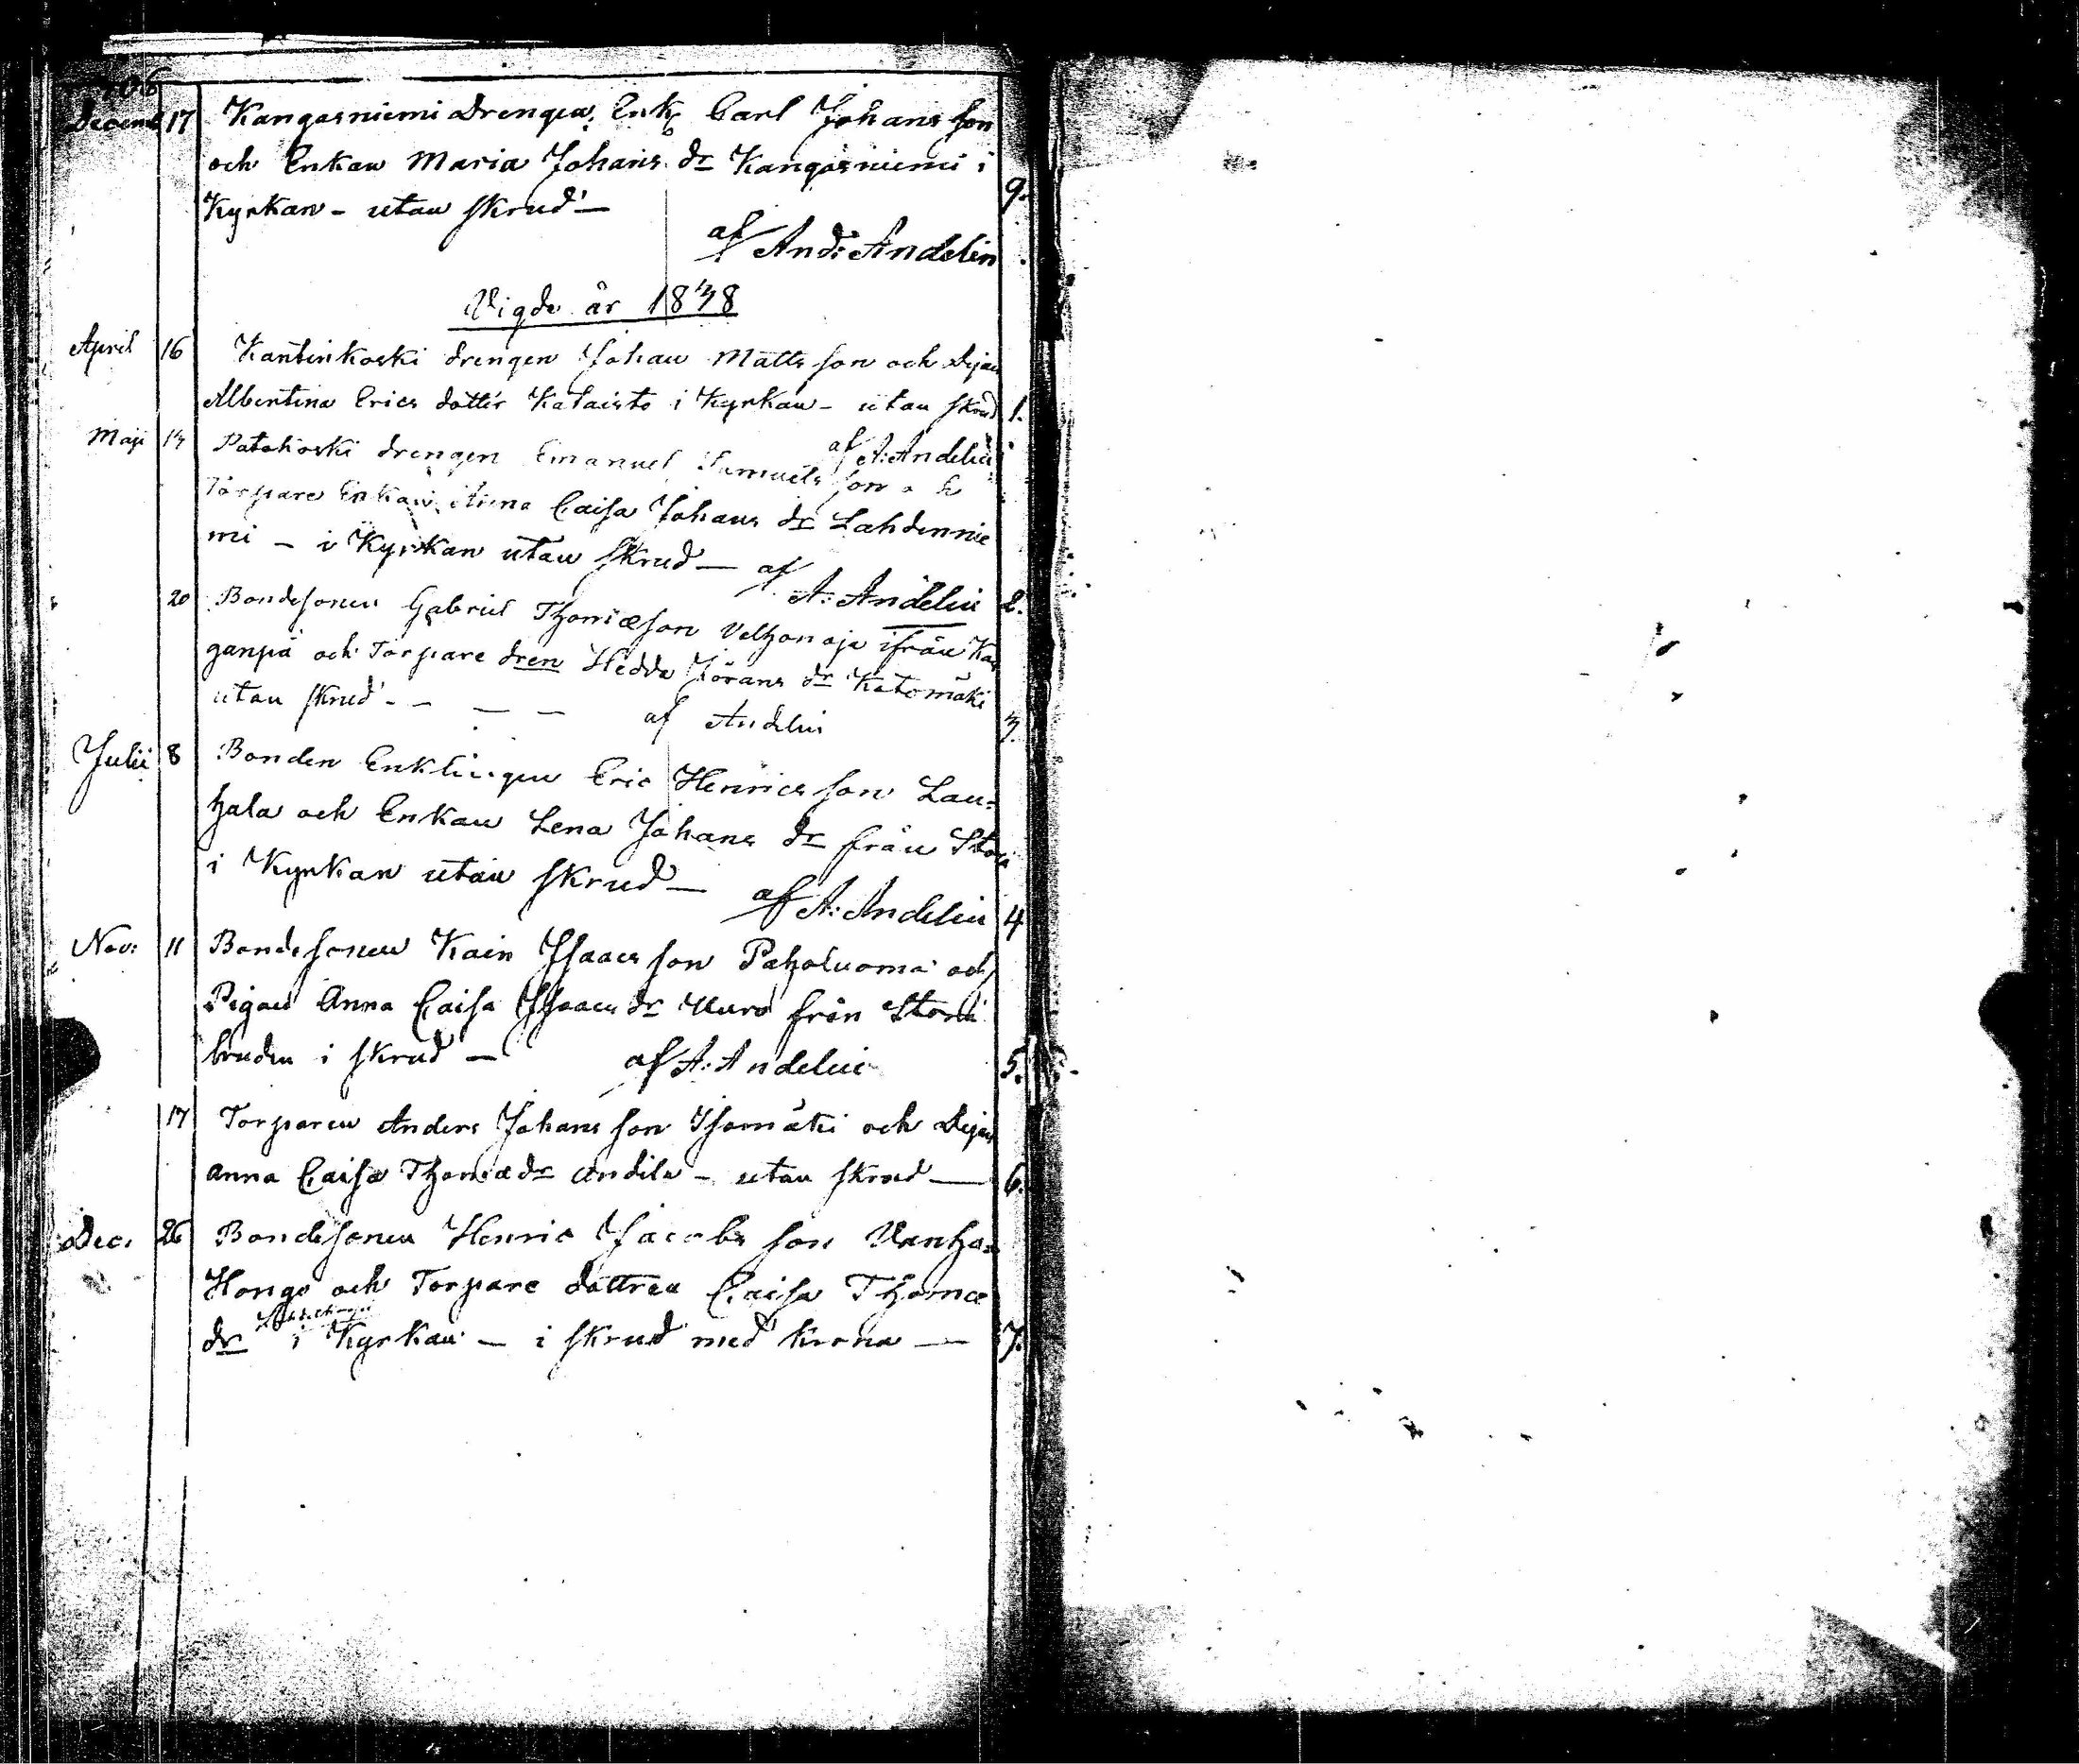 Decemb 17 Kangasniemi Drengen, Enk. Carl Johans son
och Enkan Maria Johans dr Kangasniemi i
Kyrkan - utan skrud - 9.
af And: Andelin
Vigde år 1838
April 16 Kantinkoski drengen Johan Matts son och Pigan
Albertina Erics dotter Kataisto i Kyrkan - utan skrud 1.
af A: Andelin
Maji 13 Patokoski drengen Emanuel Samuels son
Torpare Enkan Caisa Johans dr Lahdennie
mi - i Kyrkan utan skrud - af
A: Andelin 2.
20 Bondesonen Gabriel Thomæson ifrån Kan
ganpä och Torpare dren Hedda Jörans dr Katomäki
utan skrud - - - - af Andelin 3.
Julii 8 Bonden Enklingen Eric Henrics son Lau=
hala och Enkan Lena Johans dr från
i Kyrkan utan skrud - af A: Andelin 4
Nov: 11 Bondesonen Kain Isaacs son Paholuoma och
Pigan Anna Caisa Isaacs dr Kuro från Storå
bruden i skrud - af A: Andelin 5.
17 Torparen Anders Johans son Isomäki och Pigan
Anna Caisa Thomædr Andila - utan skrud - 6.
Dec. 26 Bondesonen Henric Jacobs son Vanha=
Hongo och Torpare dottren Caisa Thomæ
dr i Kyrkan - i skrud med krona - 7.